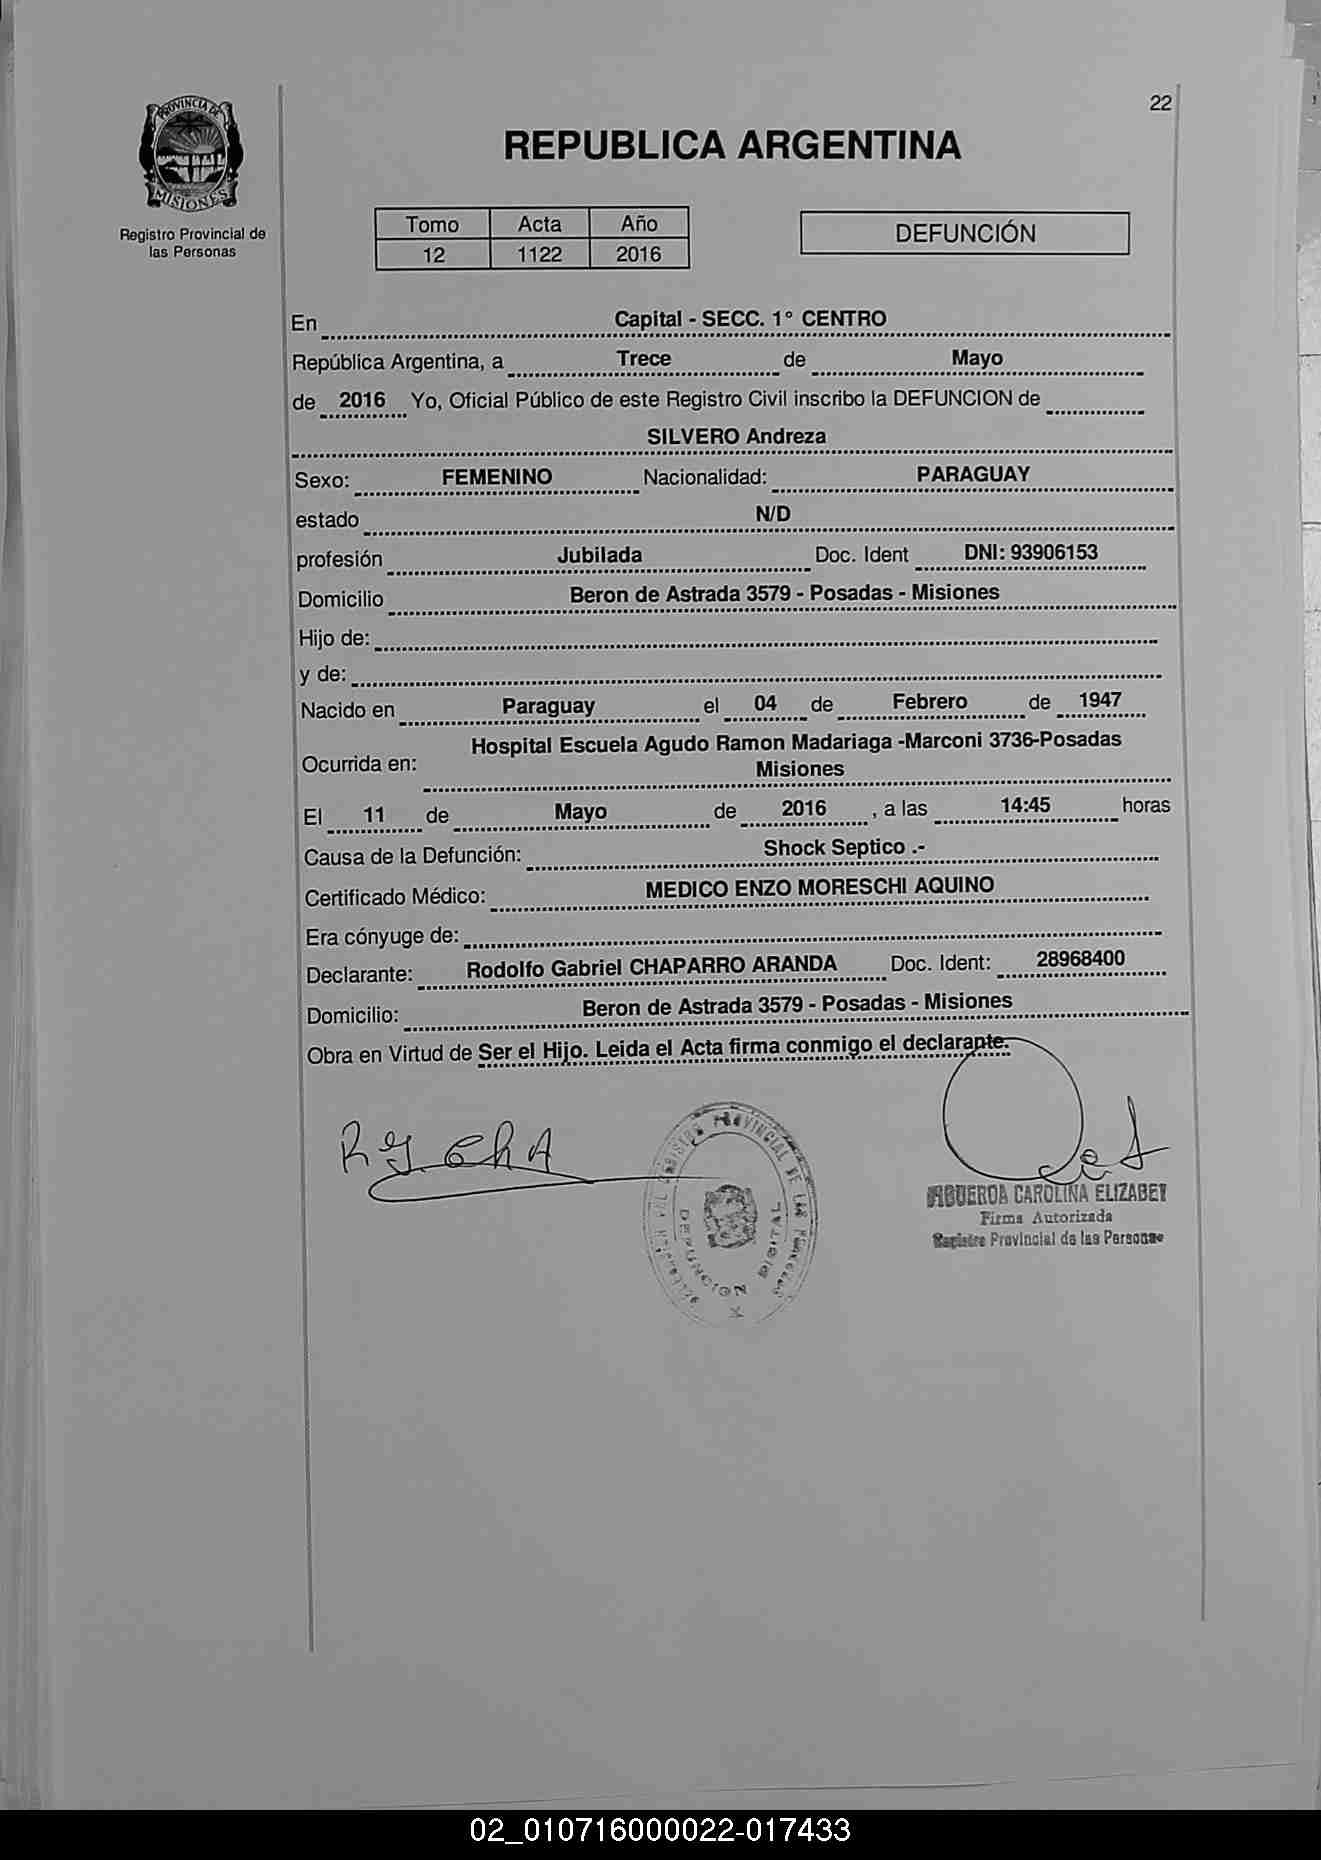 22
PROVINCIA DE
MISIONES
Registro Provincial de
las Personas
REPUBLICA ARGENTINA
Tomo Acta Año
12 1122 2016
DEFUNCIÓN
En Capital - SECC. 1° CENTRO
República Argentina, a Trece de Mayo
de 2016 Yo, Oficial Público de este Registro Civil inscribo la DEFUNCION de
SILVERO Andreza
Sexo: FEMENINO Nacionalidad: PARAGUAY
estado N/D
profesión Jubilada Doc. Ident DNI: 93906153
Domicilio Beron de Astrada 3579 - Posadas - Misiones
Hijo de:
y de:
Nacido en Paraguay el 04 de Febrero de 1947
Hospital Escuela Agudo Ramon Madariaga -Marconi 3736-Posadas
Ocurrida en: Misiones
El 11 de Mayo de 2016 , a las 14:45 horas
Causa de la Defunción: Shock Septico .-
Certificado Médico: MEDICO ENZO MORESCHI AQUINO
Era cónyuge de:
Declarante: Rodolfo Gabriel CHAPARRO ARANDA Doc. Ident: 28968400
Domicilio: Beron de Astrada 3579 - Posadas - Misiones
Obra en Virtud de Ser el Hijo. Leida el Acta firma conmigo el declarante.
PROVINCIAL DE LAS
DEFUNCION DIGITAL
FIGUEROA CAROLINA ELIZABET
Firma Autorizada
Registro Provincial de las Personas
02_010716000022-017433